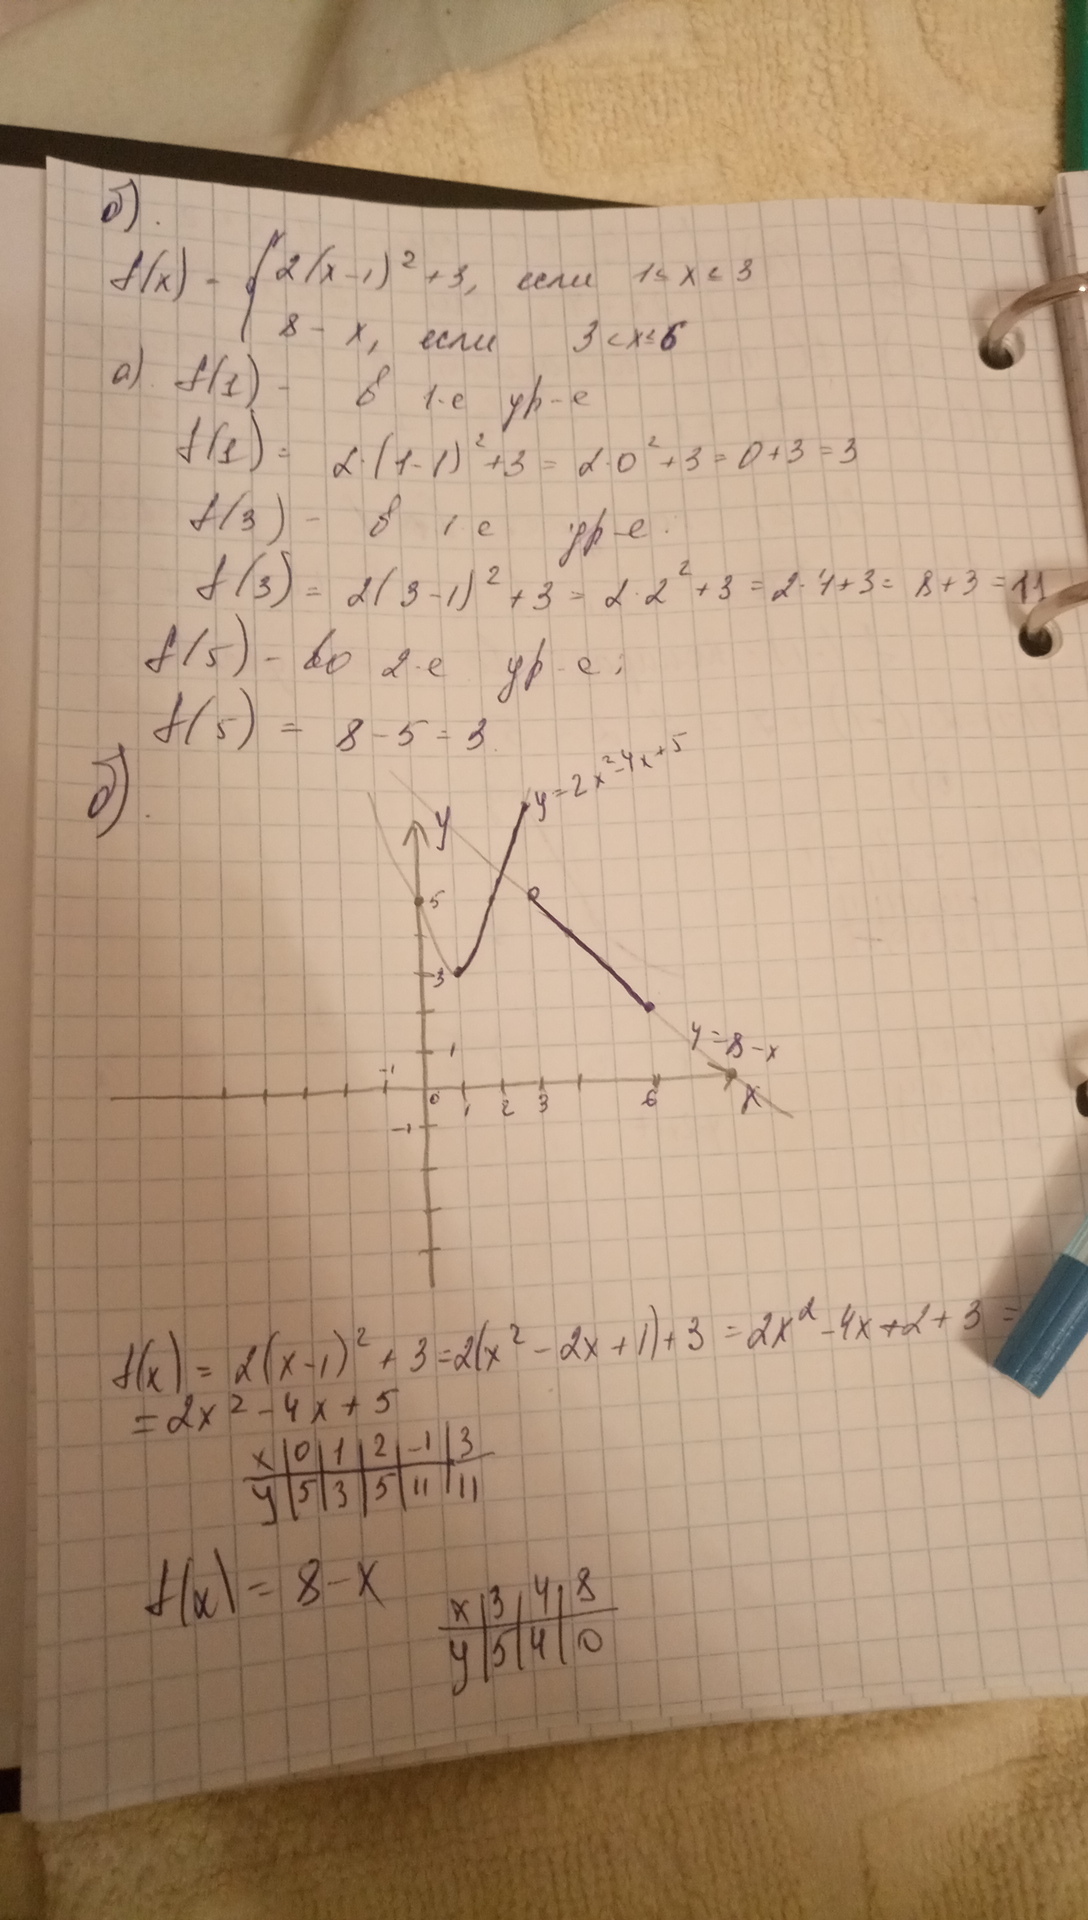 б).
f(x) - { 2(x-1)² + 3, если 1 ≤ x ≤ 3
8 - x, если 3 < x ≤ 6
а) f(1) - в 1-е ур-е
f(1) = 2·(1-1)² + 3 = 2·0² + 3 = 0 + 3 = 3
f(3) - в 1-е ур-е.
f(3) = 2(3-1)² + 3 = 2·2² + 3 = 2·4 + 3 = 8 + 3 = 11
f(5) - во 2-е ур-е:
f(5) = 8 - 5 = 3.
б).
y = 2x² - 4x + 5
y
5
3
1
y = 8 - x
-1 0 1 2 3 6 x
-1
f(x) = 2(x-1)² + 3 = 2(x² - 2x + 1) + 3 = 2x² - 4x + 2 + 3 =
= 2x² - 4x + 5
x | 0 | 1 | 2 | -1 | 3
y | 5 | 3 | 5 | 11 | 11
f(x) = 8 - x
x | 3 | 4 | 8
y | 5 | 4 | 0